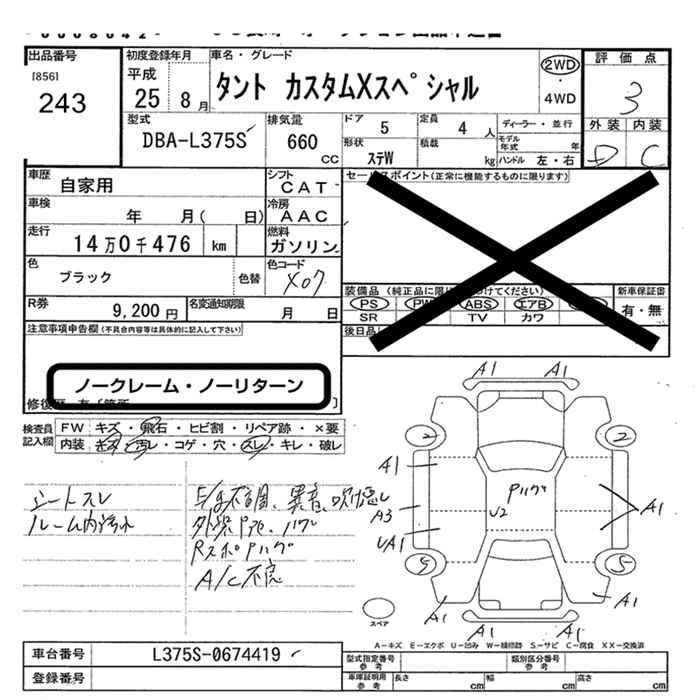 出品番号
[856]
243
初度登録年月
平成
25 8月
車名・グレード
タント カスタムXスペシャル
2WD
・
4WD
評価点
3
外装 内装
D C
型式
DBA-L375S
排気量
660
CC
ドア 5
定員 4 人
ディーラー・並行
モデル年式 年
形状 ステW
積載 kg
ハンドル 左・右
車歴
自家用
シフト
CAT
セールスポイント(正常に機能するものに限ります)
車検
年 月( 日)
冷房
AAC
走行
14万0千476 km
燃料
ガソリン
色
ブラック 色替
色コード
X07
装備品
PS PW ABS エアB
SR TV カワ
新車保証書
有・無
R券
9,200 円
名変通知期限
月 日
後日品
注意事項申告欄(不具合内容等は具体的に記入して下さい)
ノークレーム・ノーリターン
修復歴
検査員記入欄
FW キズ・飛石・ヒビ割・リペア跡・×要
内装 キズ・汚レ・コゲ・穴・スレ・キレ・破レ
シートスレ
ルーム内汚れ
A/C不良
A1 A1
2 2
A1
Pハゲ
U2
A3
A1
UA1
5 5
A1 A1
A1 A1
スペア
A-キズ E-エクボ U-凹み W-補修跡 S-サビ C-腐食 XX-交換済
車台番号
L375S-0674419
登録番号
型式指定番号 参考
類別区分番号 参考
車庫証明用 参考
長さ cm
幅 cm
高さ cm